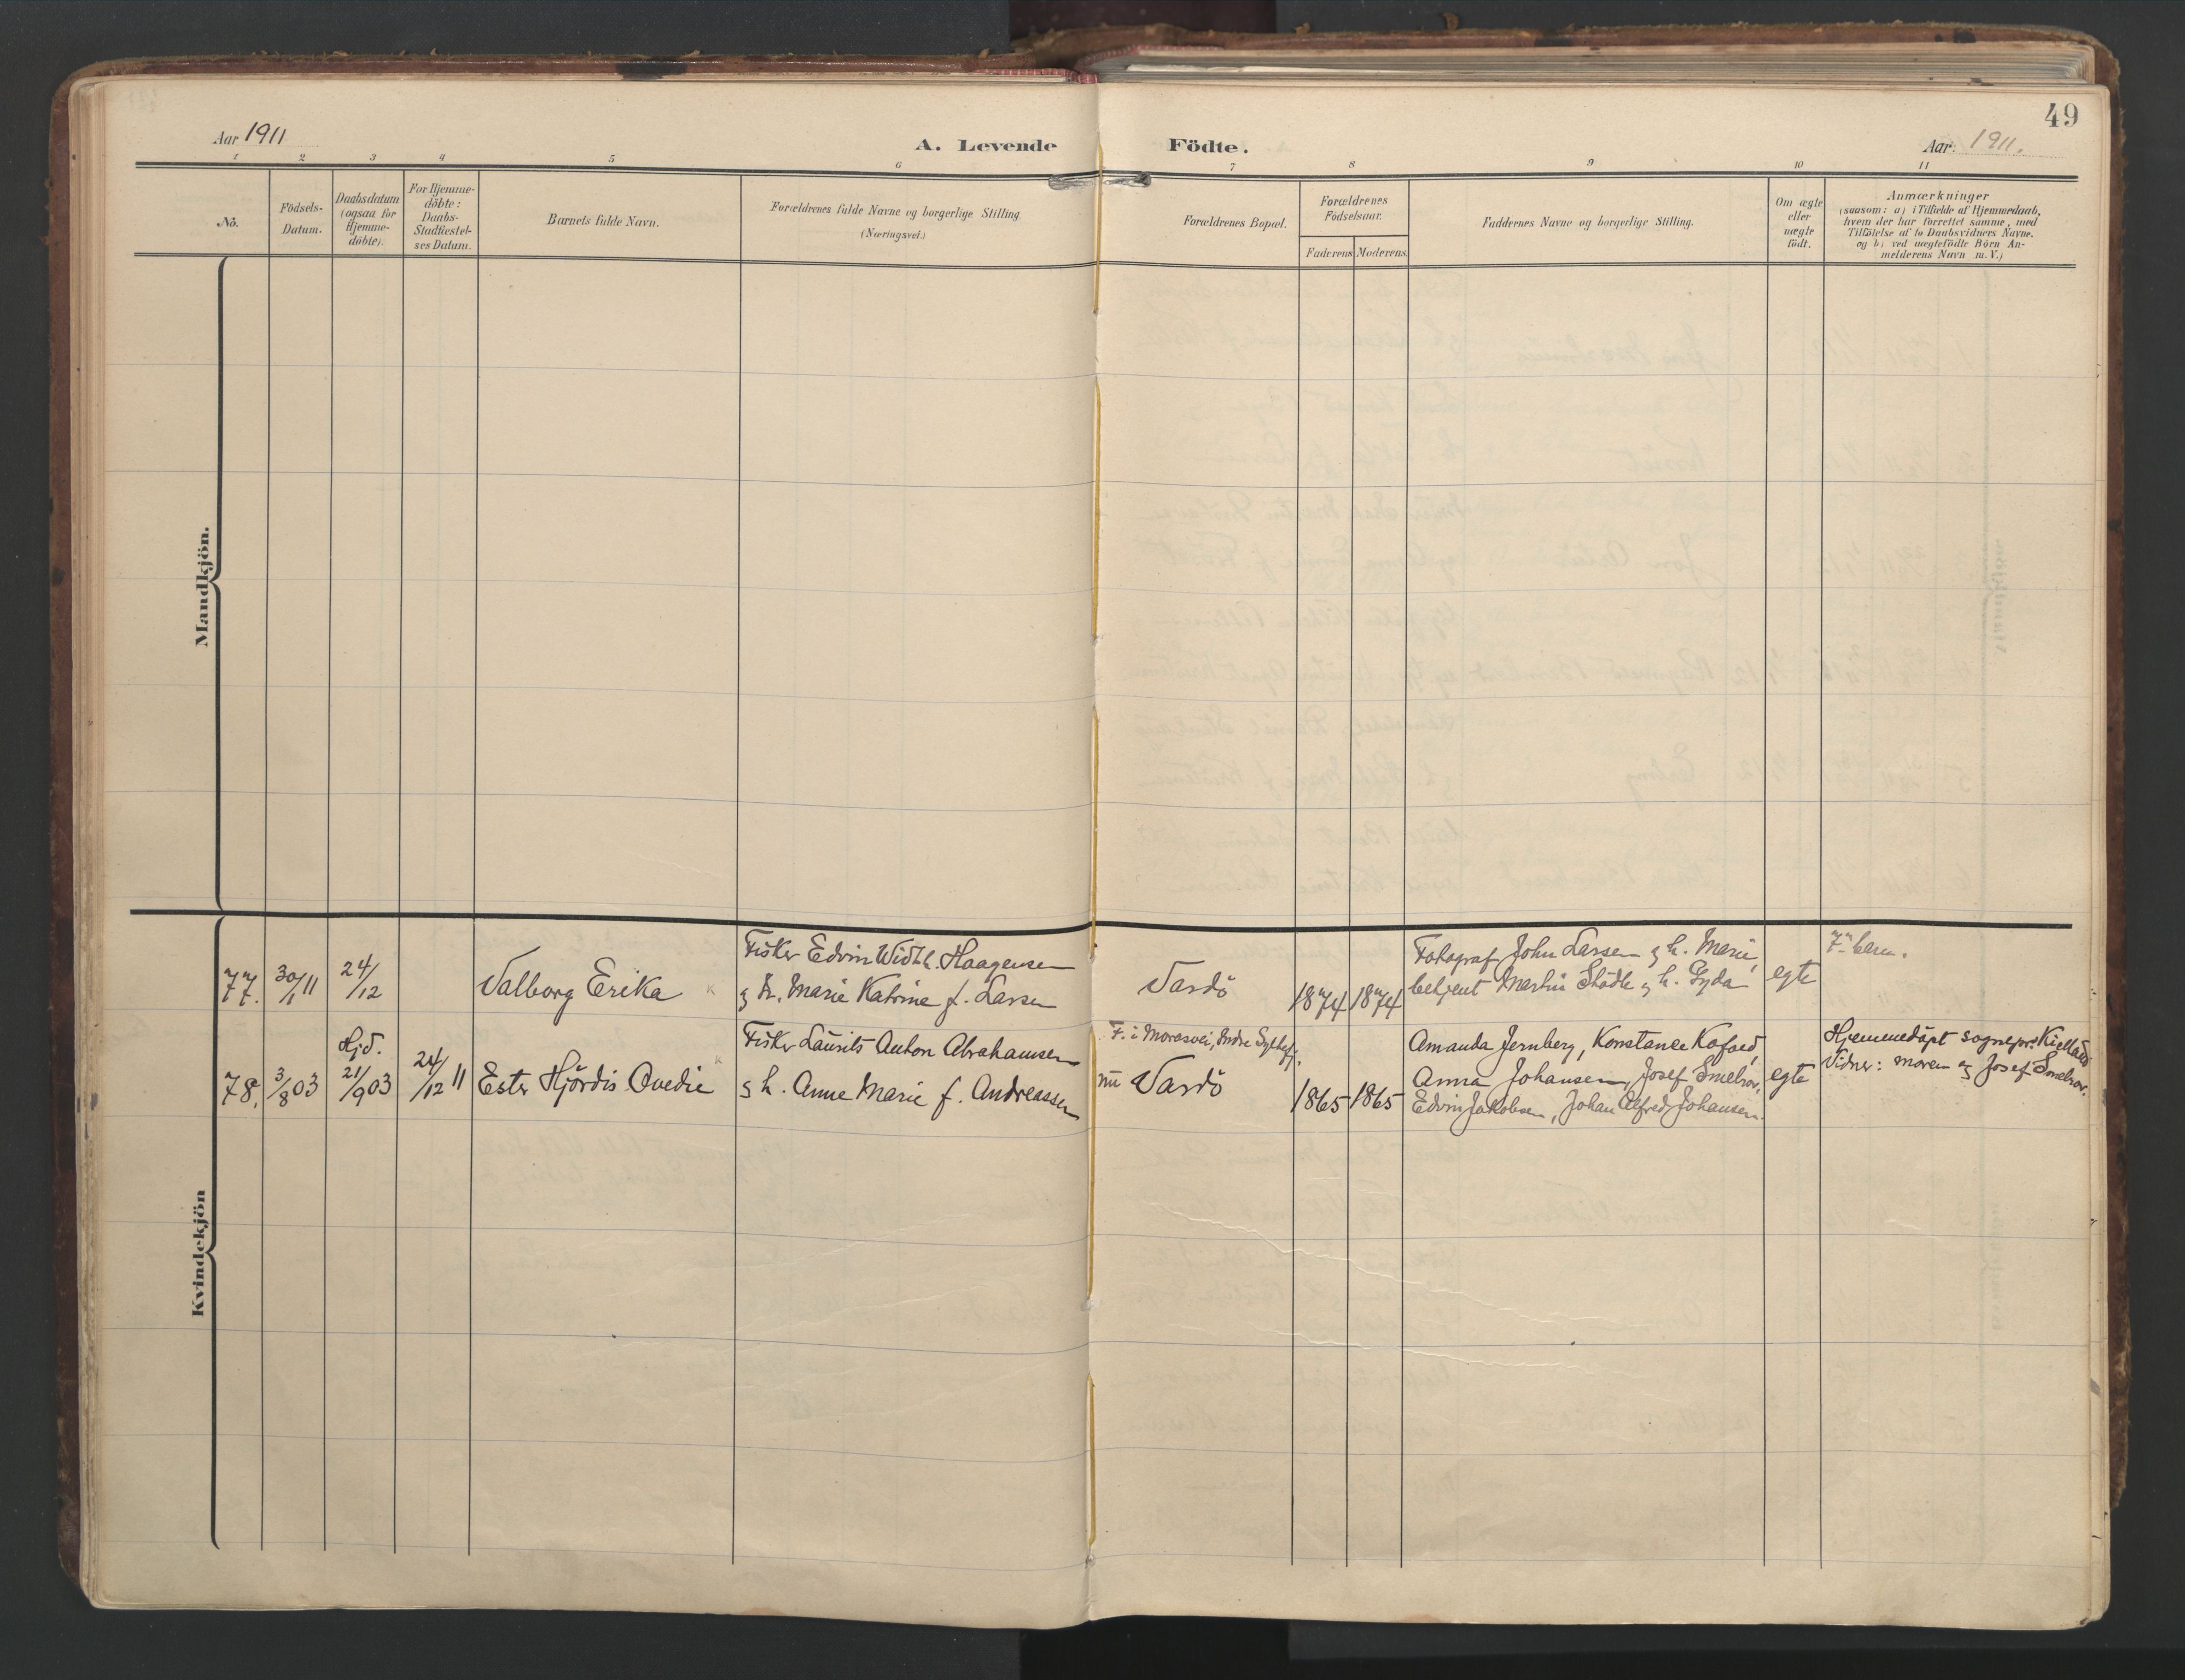 49
Aar 1911
A. Levende Födte.
Aar: 1911.
1 2 3 4 5 6 7 8 9 10 11
No.
Födsels-
Datum.
Daabsdatum
(ogsaa for
Hjemme-
döbte).
For Hjemme-
döbte:
Daabs-
Stadfæstel-
ses Datum.
Barnets fulde Navn.
Forældrenes fulde Navne og borgerlige Stilling
(Næringsvei.)
Forældrenes Bopæl.
Forældrenes
Födselsaar.
Faderens Moderens.
Faddernes Navne og borgerlige Stilling.
Om ægte
eller
uægte
födt.
Anmærkninger
(saasom: a) i Tilfælde af Hjemmedaab,
hvem der har forrettet samme, med
Tilföielse af to Daabsvidners Navne.
og b) ved uægtefödte Börn An-
melderens Navn m. V.)
Mandkjön.
Kvindekjön
77. 30/11
24/12
Valborg Erika
Fisker Edvin Width. Haagensen
g h. Marie Katrine f. Larsen
Vardö
1874 1874
Fotograf John Larsen g h. Marie,
betjent Martin Stödle g h. Gyda
egte
7n barn.
78. 3/8 03
Hjd.
21/9 03
24/12 11
Ester Hjördis Ovedie
Fisker Laurits Anton Abrahamsen
g h. Anne Marie f. Andreassen
F. i Indre
nu Vardö
1865 1865
Amanda Jernberg, Konstance Kofoed,
Anna Johansen, Josef Smelror,
Edvin Jakobsen, Johan Alfred Johansen.
egte
Hjemmedöpt sognepr. Kielland
Vidner: moren og Josef Smelror.